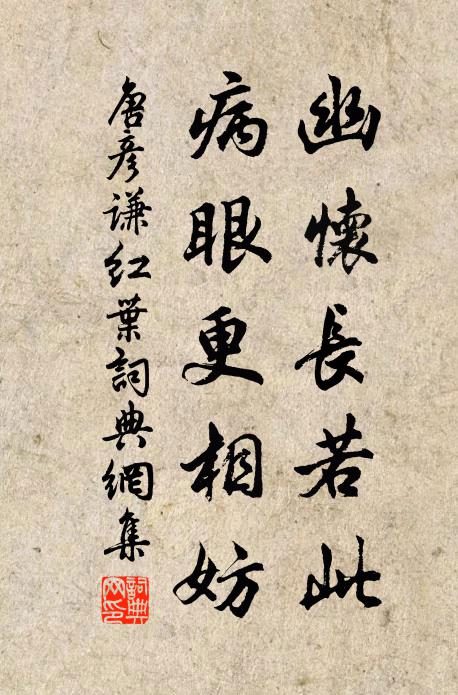 幽懷長若此
病眼更相妨
唐彥謙紅葉詞典網集
詞典網印